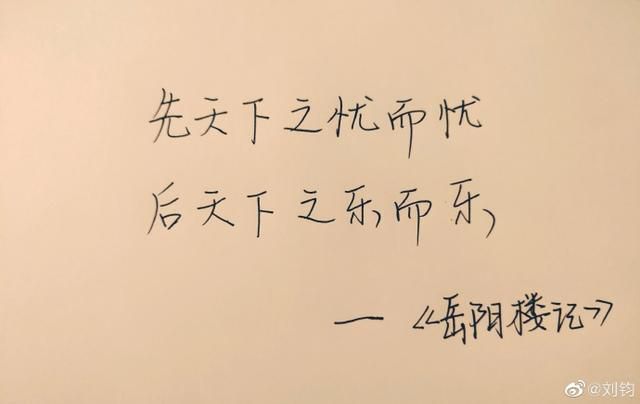 先天下之忧而忧
后天下之乐而乐
—《岳阳楼记》
@刘钧